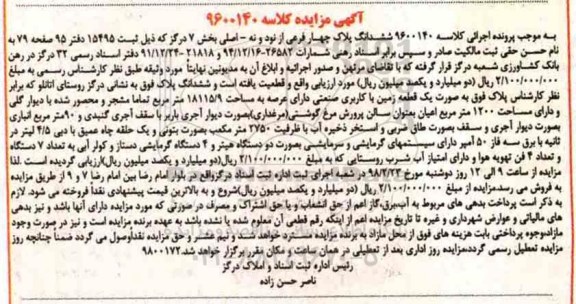 آگهی مزایده کلاسه ۹۶۰۰۱۴۰
به موجب پرونده اجرائی کلاسه ۹۶۰۰۱۴۰ ششدانگ پلاک چهار فرعی از نود و نه - اصلی بخش ۷ درگز که ذیل ثبت ۱۵۴۹۵ دفتر ۹۵ صفحه ۷۹ به
نام حسن حقی ثبت مالکیت صادر و سپس برابر اسناد رهنی شمارات ۲۶۵۸۲-۹۴/۱۲/۱۶ و ۲۱۸۱۸ -۹۱/۱۲/۲۴ دفتر اسناد رسمی ۳۲ درگز در رهن
بانک کشاورزی شعبه درگز قرار گرفته که با تقاضای مرتهن و صدور اجرائیه و ابلاغ آن به مدیونین نهایتاً مورد وثیقه طبق نظر کارشناس رسمی به مبلغ
۲/۱۰۰/۰۰۰/۰۰۰ ریال (دو میلیارد و یکصد میلیون ریال) مورد ارزیابی واقع و قطعیت یافته است و ششدانگ پلاک فوق به نشانی درگز روستای اتانلو که برابر
نظر کارشناس پلاک فوق به صورت یک قطعه زمین با کاربری صنعتی دارای عرصه به مساحت ۱۸۱۱۵/۹ متر مربع تماما مشجر و محصور شده با دیوار گلی
و دارای مساحت ۱۲۰۰ متر مربع اعیان بعنوان سالن پرورش مرغ گوشتی(مرغداری)بصورت دیوار آجری باربر با سقف آجری گنبدی و ۹۰متر مربع انباری
بصورت دیوار آجری و سقف بصورت طاق ضربی و استخر ذخیره آب با ظرفیت ۲۷۵۰ متر مکعب بصورت بتونی و یک حلقه چاه عمیق با دبی ۴/۵ لیتر در
ثانیه با برق سه فاز ۵۰ آمپر دارای سیستمهای گرمایشی و سرمایشی بصورت دو دستگاه هیتر و ۴ دستگاه گرمایشی دستاز و کولر آبی به تعداد ۷ دستگاه
و تعداد ۴ فن تهویه هوا و دارای امتیاز آب شرب روستایی که به مبلغ ۲/۱۰۰/۰۰۰/۰۰۰ ریال(دو میلیارد و یکصد میلیون ریال)ارزیابی گردیده است .لذا
مزایده از ساعت ۹ الی ۱۲ روز دوشنبه مورخ ۹۸/۷/۲۲ در شعبه اجرای ثبت اداره ثبت اسناد درگزواقع در بلوار امام رضا بین امام رضا ۷ و ۹ از طریق مزایده
به فروش می رسد.مزایده از مبلغ ۲/۱۰۰/۰۰۰/۰۰۰ ریال (دو میلیارد و یکصد میلیون ریال)شروع و به بالاترین قیمت پیشنهادی نقداً فروخته می شود. لازم
به ذکر است پرداخت بدهی های مربوط به آب،برق،گاز اعم از حق انشعاب و یا حق اشتراک و مصرف در صورتی که مورد مزایده دارای آنها باشد و نیز بدهی
های مالیاتی و عوارض شهرداری و غیره تا تاریخ مزایده اعم از اینکه رقم قطعی آن معلوم شده یا نشده باشد به عهده برنده مزایده است و نیز در صورت وجود
مازاد،وجوه پرداختی بابت هزینه های فوق از محل مازاد به برنده مزایده مسترد خواهد شد و نیم عشر و حق مزایده نقداًوصول می گردد ضمناً چنانچه روز
مزایده تعطیل رسمی گردد،مزایده روز اداری بعد از تعطیلی در همان ساعت و مکان مقرر برگزار خواهد شد.۹۸۰۰۱۷۲
رئیس اداره ثبت اسناد و املاک درگز
ناصر حسن زاده